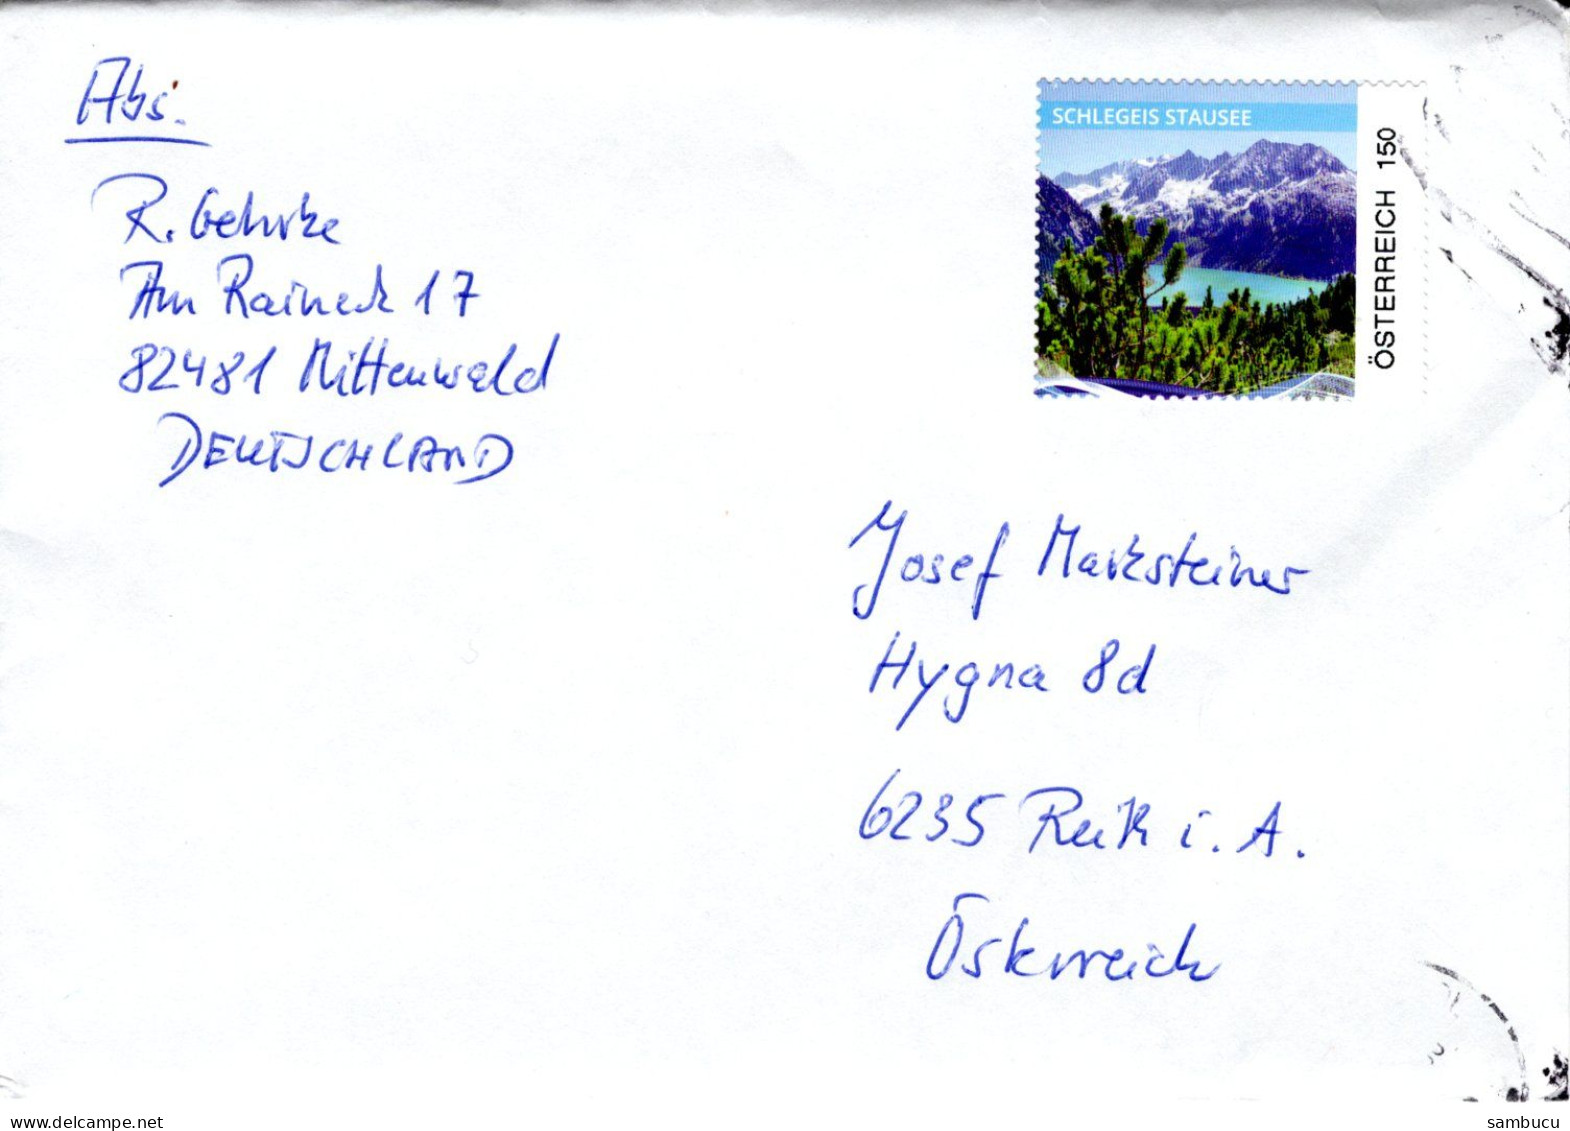 Abs.
R. Gehrke
Am Raineck 17
82481 Mittenwald
DEUTSCHLAND
SCHLEGEIS STAUSEE
ÖSTERREICH 150
Josef Marksteiner
Hygna 8d
6235 Reith i. A.
Österreich
www.delcampe.net
sambucu